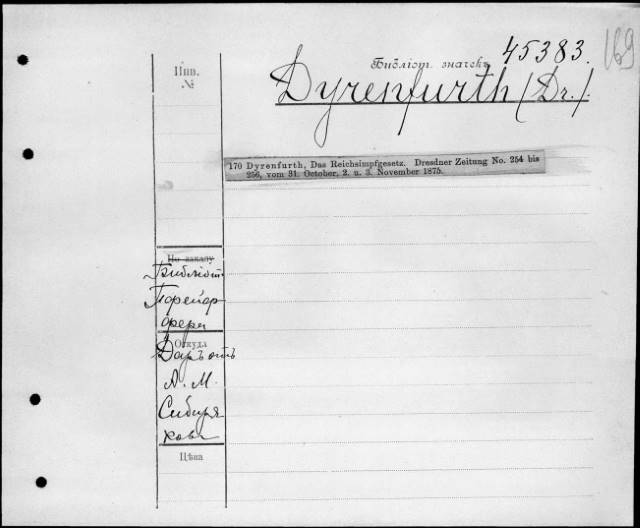 169
45383.
Библіот. значекъ
Инв.
№
Dyrenfurth (Dr.).
170 Dyrenfurth, Das Reichsimpfgesetz. Dresdner Zeitung No. 254 bis
256, vom 31. October, 2. u. 3. November 1875.
По заказу
Библіот.
Откуда
Даръ отъ
А. М.
Сибиря
кова
Цѣна